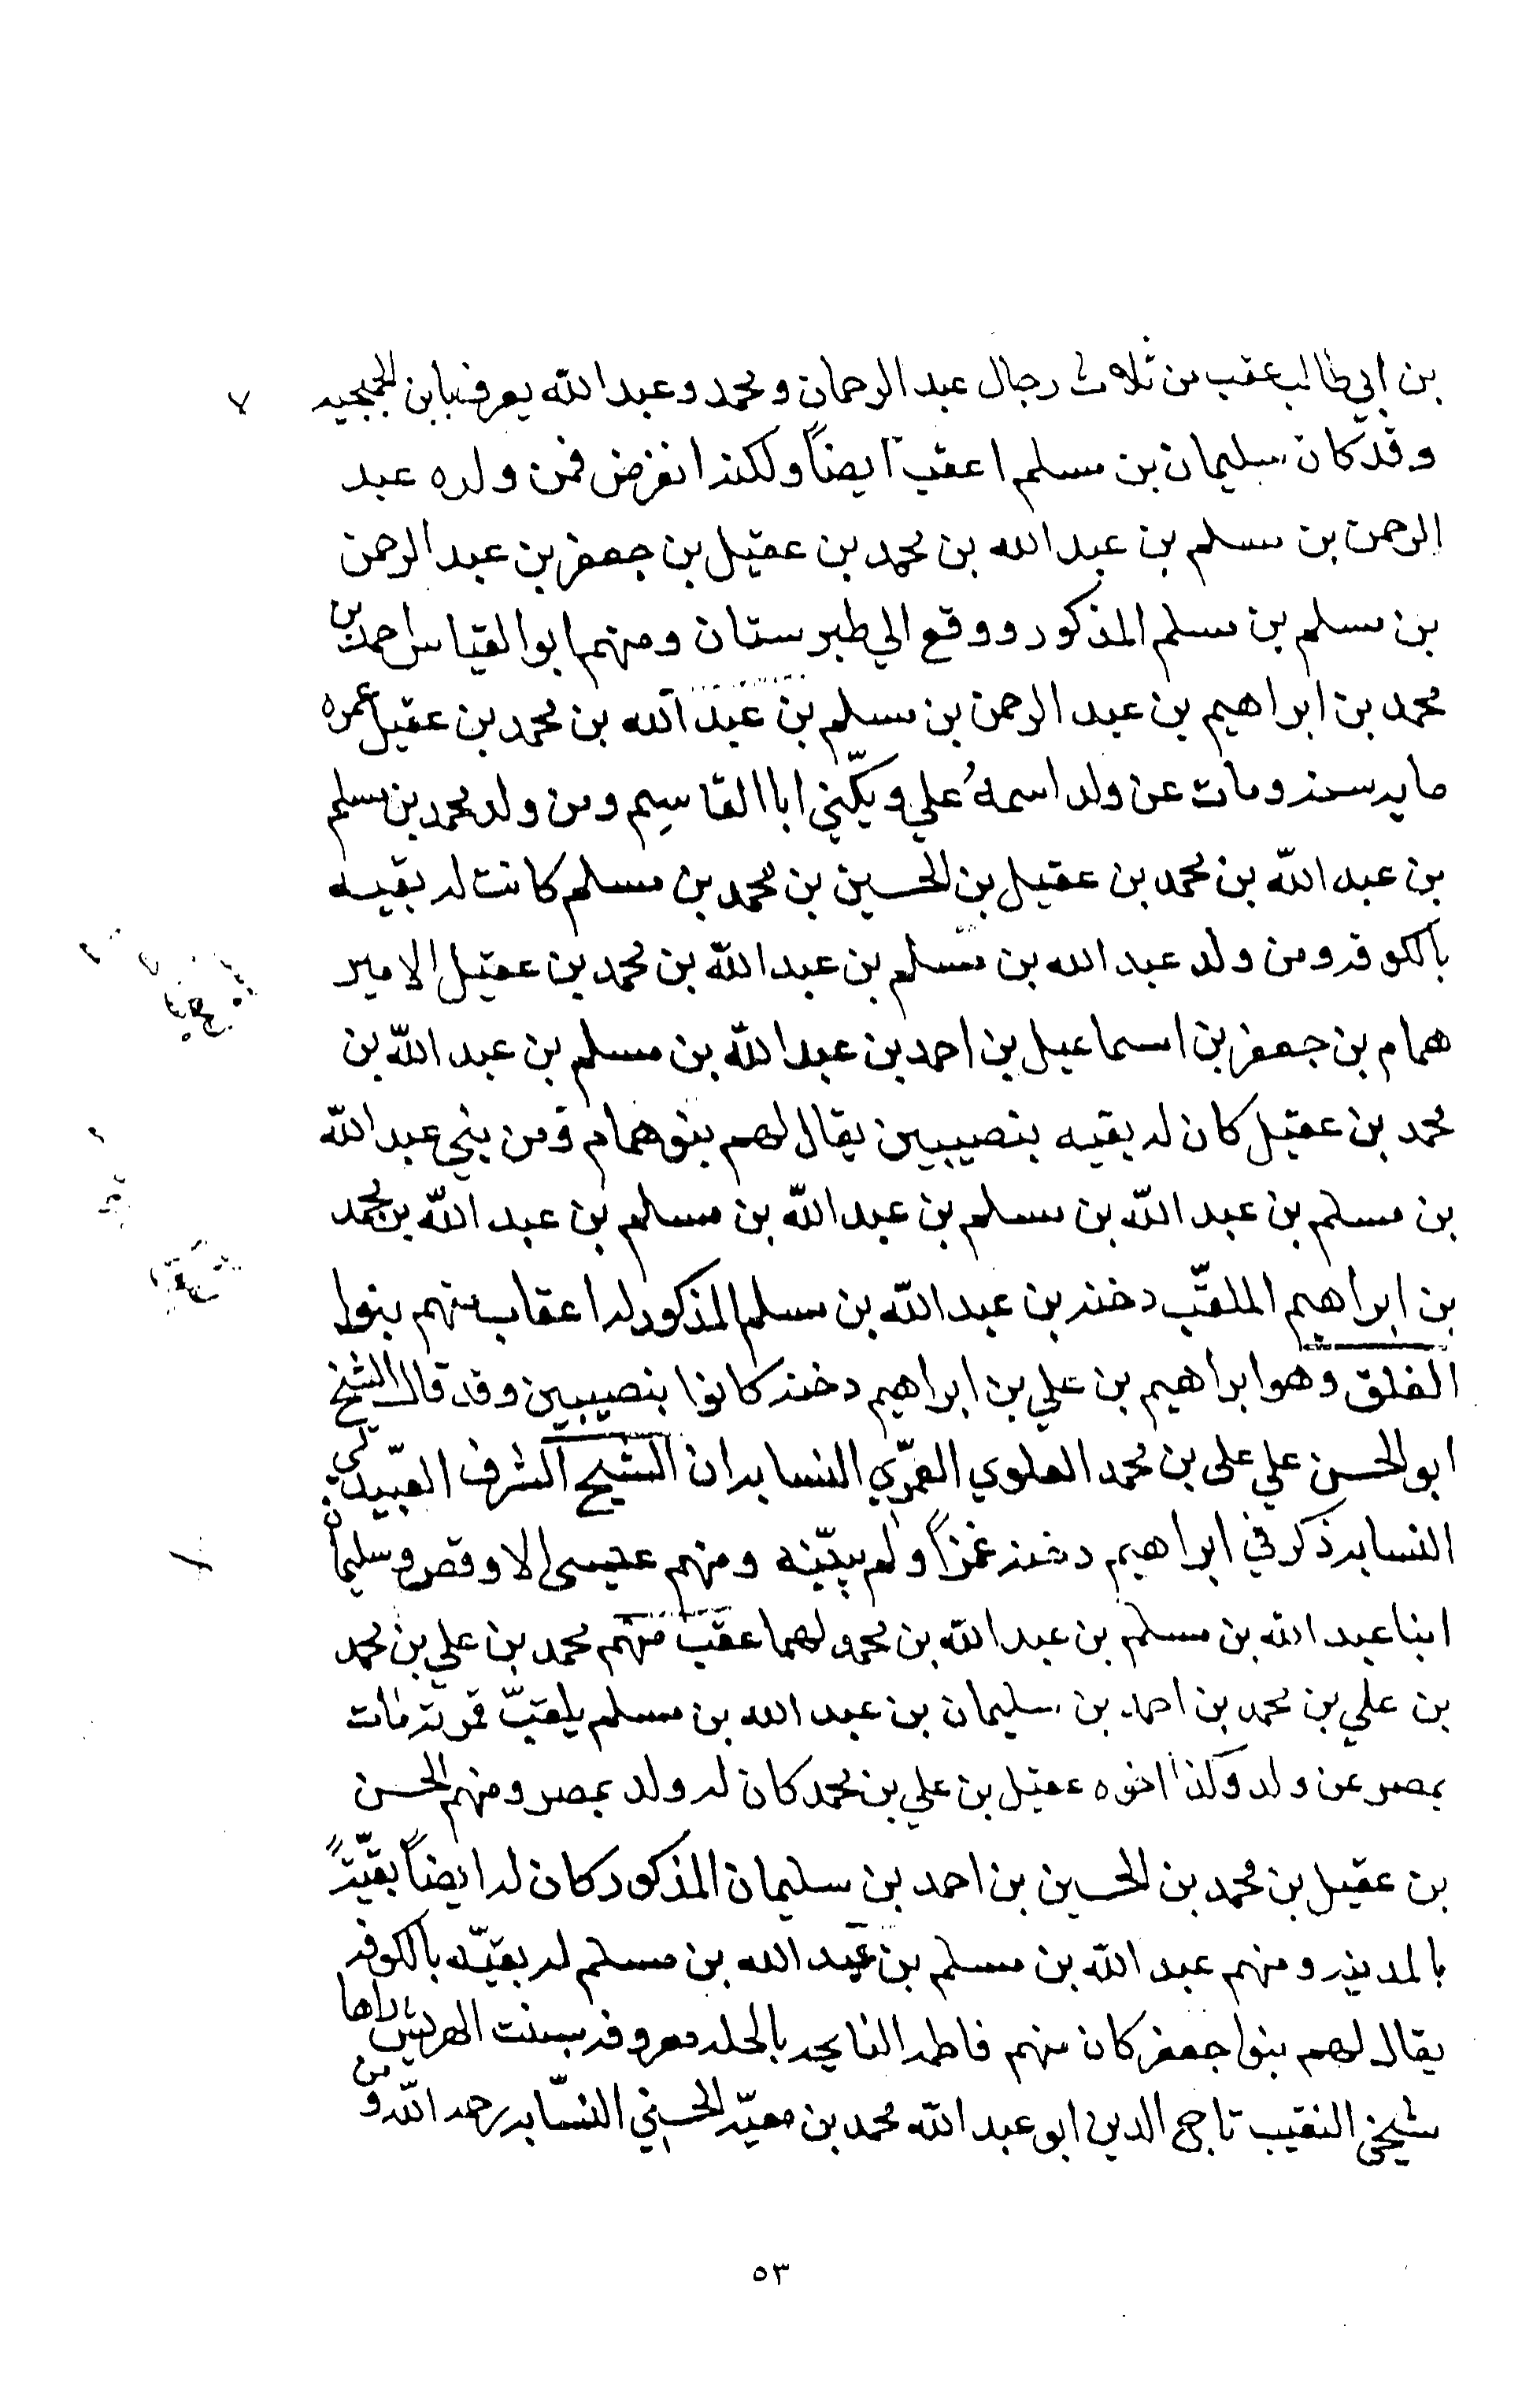 بن ابي طالب عقب من ثلاث رجال عبد الرحمان ومحمد وعبد الله يعرف بابن الجمجيه
وقد كان سليمان بن مسلم اعقب ايضاً ولكنه انقرض فمن ولده عبد
الرحمن بن مسلم بن عبد الله بن محمد بن عقيل بن جعفر بن عبد الرحمن
بن مسلم بن مسلم المذكور ووقع الي طبرستان ومنهم ابو القياس احمد بن
محمد بن ابراهيم بن عبد الرحمن بن مسلم بن عبد الله بن محمد بن عقيل عمره
مايه سنه ومات عن ولد اسمهُ علي ويكّني ابا القاسِم ومن ولد محمد بن مسلم
بن عبد الله بن محمد بن عقيل بن الحسين بن محمد بن مسلم كانت له بقيه
بالكوفه ومن ولد عبد الله بن مسلم بن عبد الله بن محمد بن عقيل الامير
همام بن جعفر بن اسماعيل بن احمد بن عبد الله بن مسلم بن عبد الله بن
محمد بن عقيل كان له بقيه بنصيبين يقال لهم بنو همام ومن بني عبد الله
بن مسلم بن عبد الله بن مسلم بن عبد الله بن مسلم بن عبد الله بن محمد
بن ابراهيم الملقّب دخنه بن عبد الله بن مسلم المذكور له اعقاب منهم بنوا
الفلق وهو ابراهيم بن علي بن ابراهيم دخنه كانوا بنصيبين وقد قال الشيخ
ابو الحسن علي على بن محمد العلوي العمّري النسابه ان الشيخ الشرف العبّيدلى
النسابه ذكر في ابراهيم دخنه غمزاً ولم يبيّنه ومنهم عيسى الاوقص وسليمان
ابنا عبد الله بن مسلم بن عبد الله بن محمد ولهما عقب منهم محمد بن علي بن محمد
بن علي بن محمد بن احمد بن سليمان بن عبد الله بن مسلم يلقبّ قمريه مات
بمصر عن ولد وكذا اخوه عقيل بن علي بن محمد كان له ولد بمصر ومنهم الحسن
بن عقيل بن محمد بن الحسين بن احمد بن سليمان المذكور كان له ايضاً بقيّةً
بالمدينه ومنهم عبد الله بن مسلم بن عبد الله بن مسلم له بقيّه بالكوفه
يقال لهم بنوا جعفر كان منهم فاطمه النايحه بالحله معروفه ببنت الهريش راها
شيخي النقيب تاج الدين ابو عبد الله محمد بن معيّه الحسني النسّابه رحمه الله ومن
٥٣